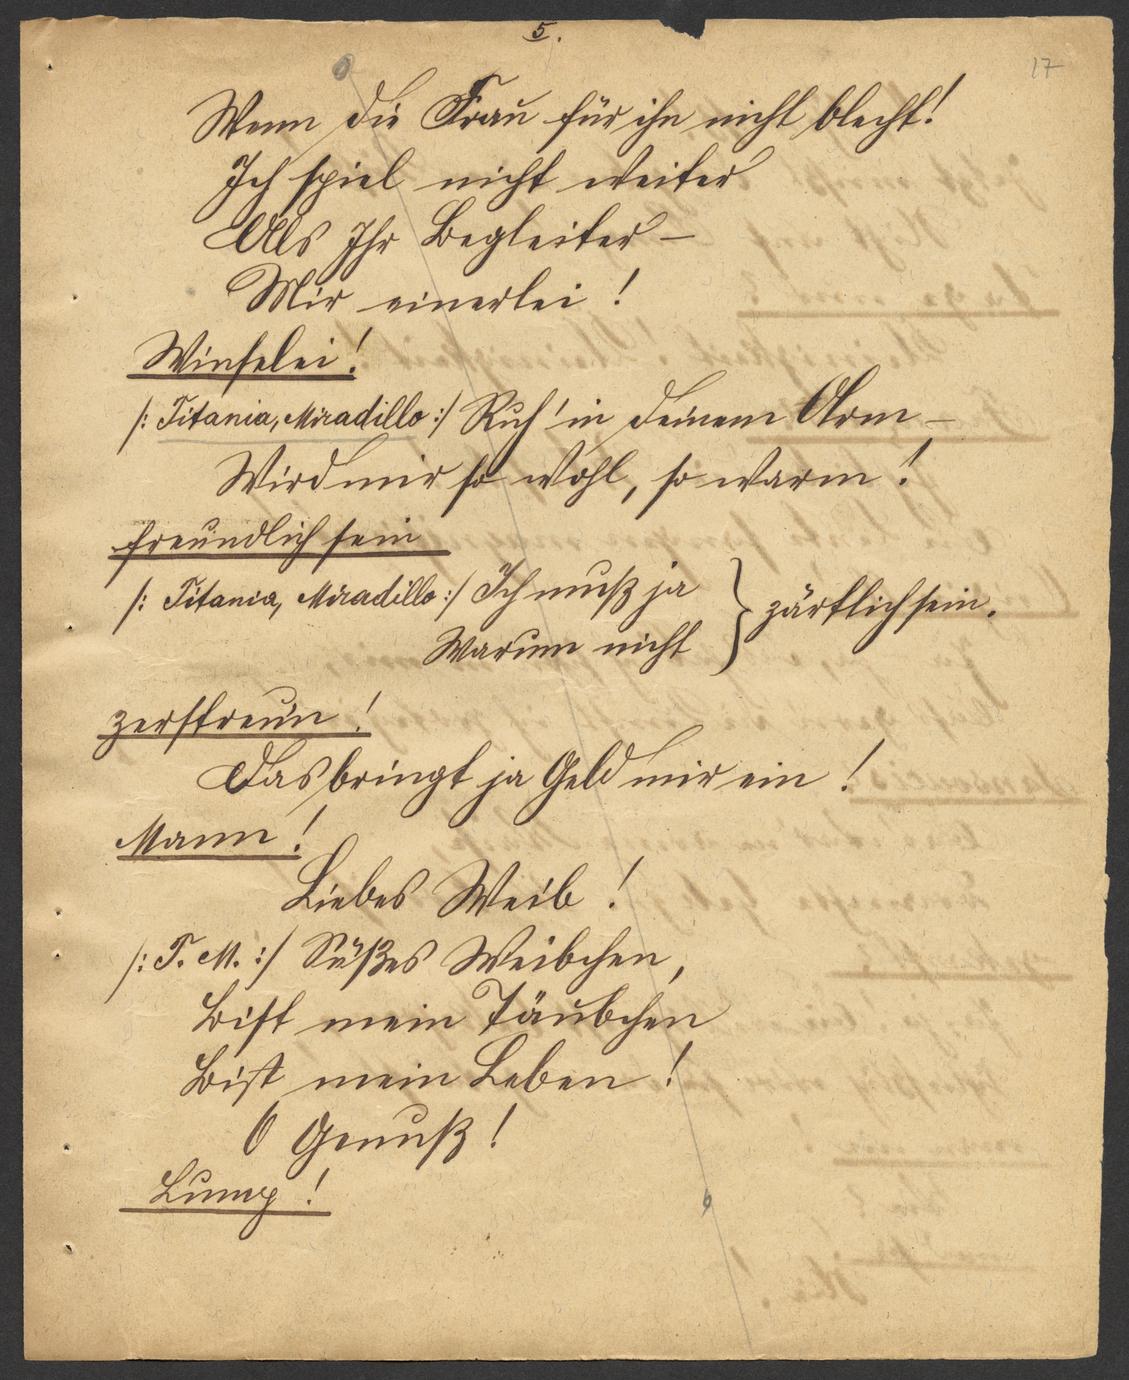 5.
17
Wenn die Frau für ihn nicht blecht!
Ich spiel nicht weiter
Als Ihr Begleiter –
Mir einerlei!
Winselei!
/: Titania, Miradillo :/ Ruh' in deinem Arm –
Wird mir so wohl, so warm!
freundlich sein
/: Titania, Miradillo :/ Ich muß ja } zärtlich sein.
Warum nicht
zerstreu'n!
Das bringt ja Geld mir ein!
Mann!
Liebes Weib!
/: T. M. :/ Süßes Weibchen,
Bist mein Täubchen
Bist mein Leben!
O Genuß!
Lump!